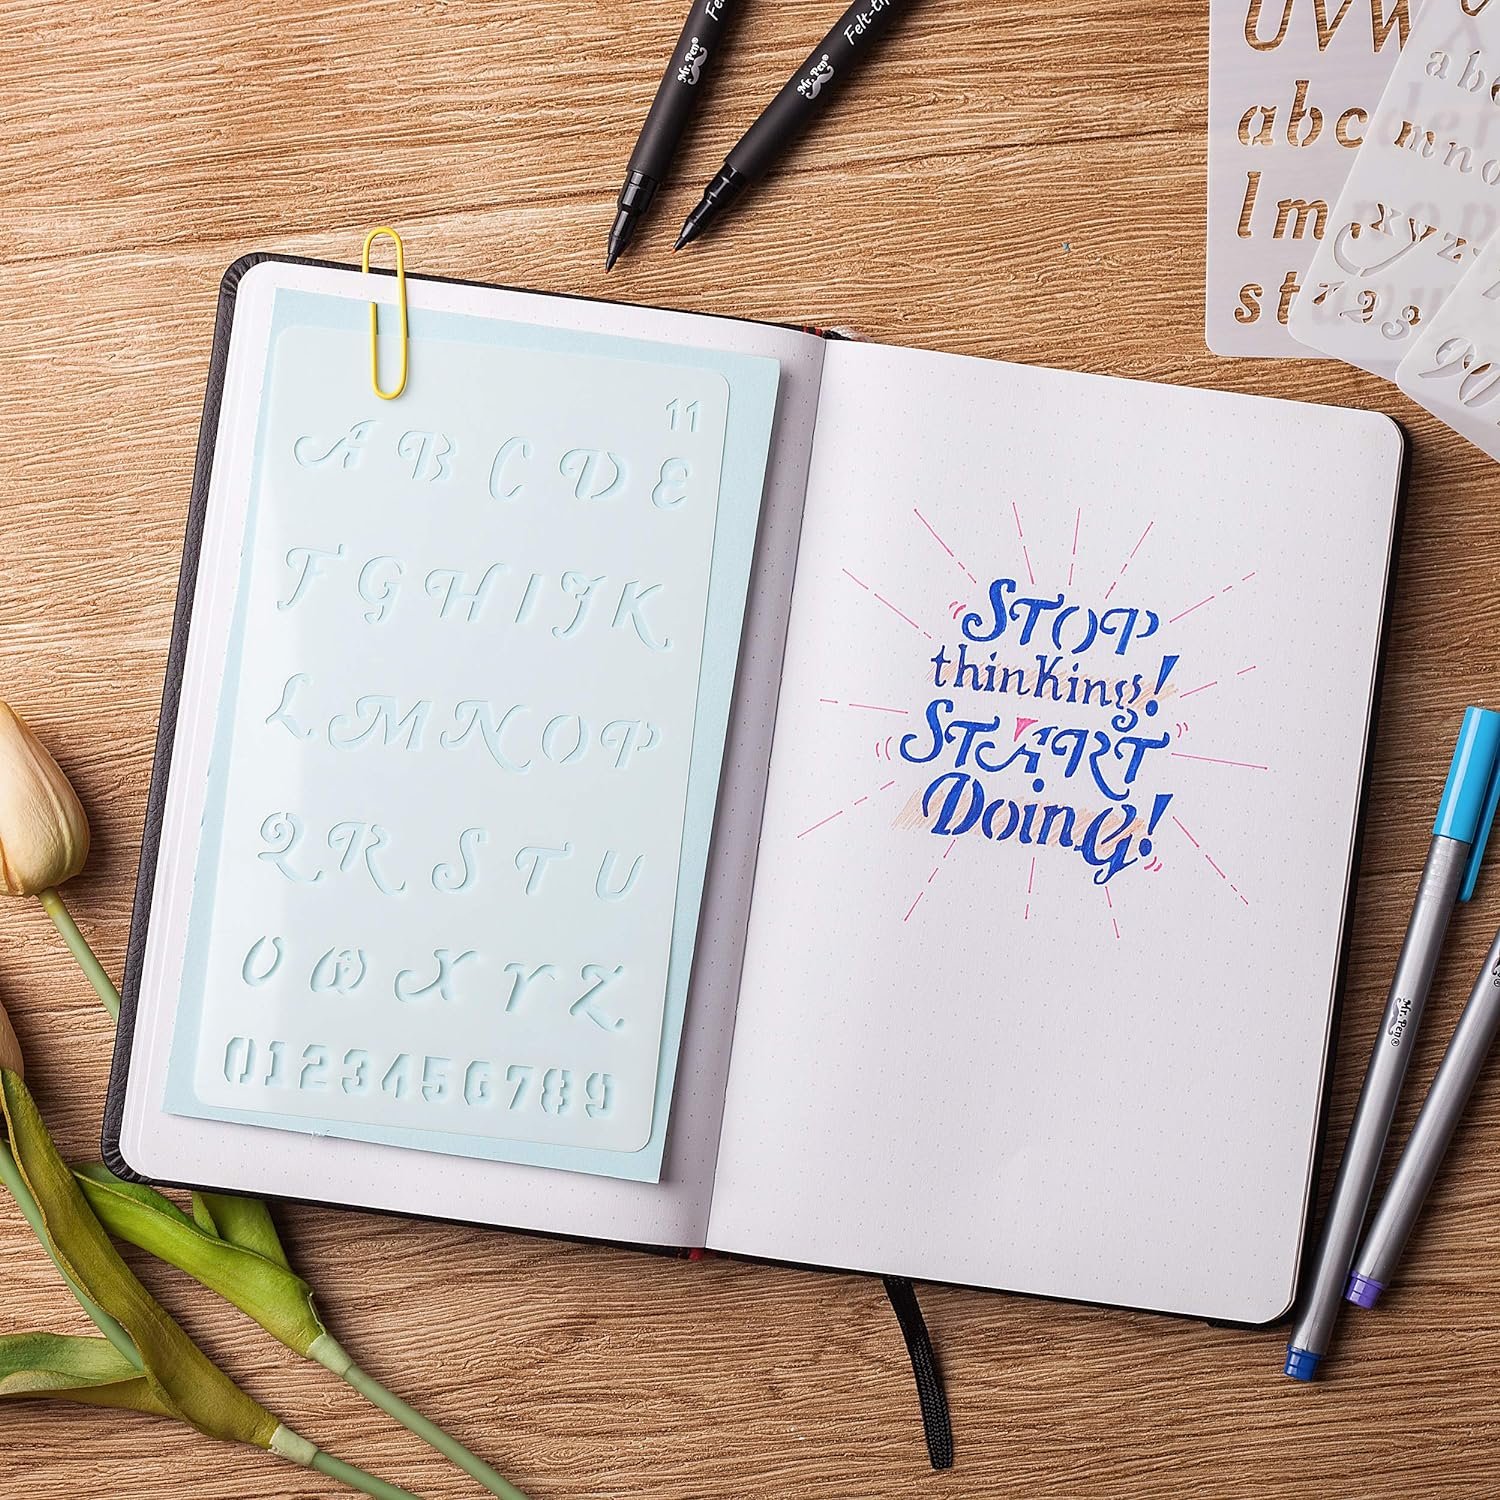 Mr. Pen®
Mr. Pen®
Felt-tip
UVW
abc
lm
st
abc
mno
xyz
123
90
11
A B C D E
F G H I J K
L M N O P
Q R S T U
U W X Y Z
0123456789
STOP
thinking!
START
Doing!
Mr. Pen®